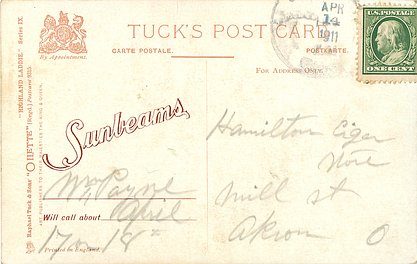 TUCK'S POST CARD
CARTE POSTALE.
POSTKARTE.
APR
14
1911
U.S. POSTAGE
ONE CENT
By Appointment.
FOR ADDRESS ONLY.
Raphael Tuck & Sons' "OILETTE" [Regd.] Postcard
"HIGHLAND LADDIE." Series IX.
ART PUBLISHERS TO THEIR MAJESTIES THE KING & QUEEN.
Sunbeams
Wm Payne
Will call about April
17 or 18th
Printed in England.
Hamilton Cigar
Store
Mill St
Akron O